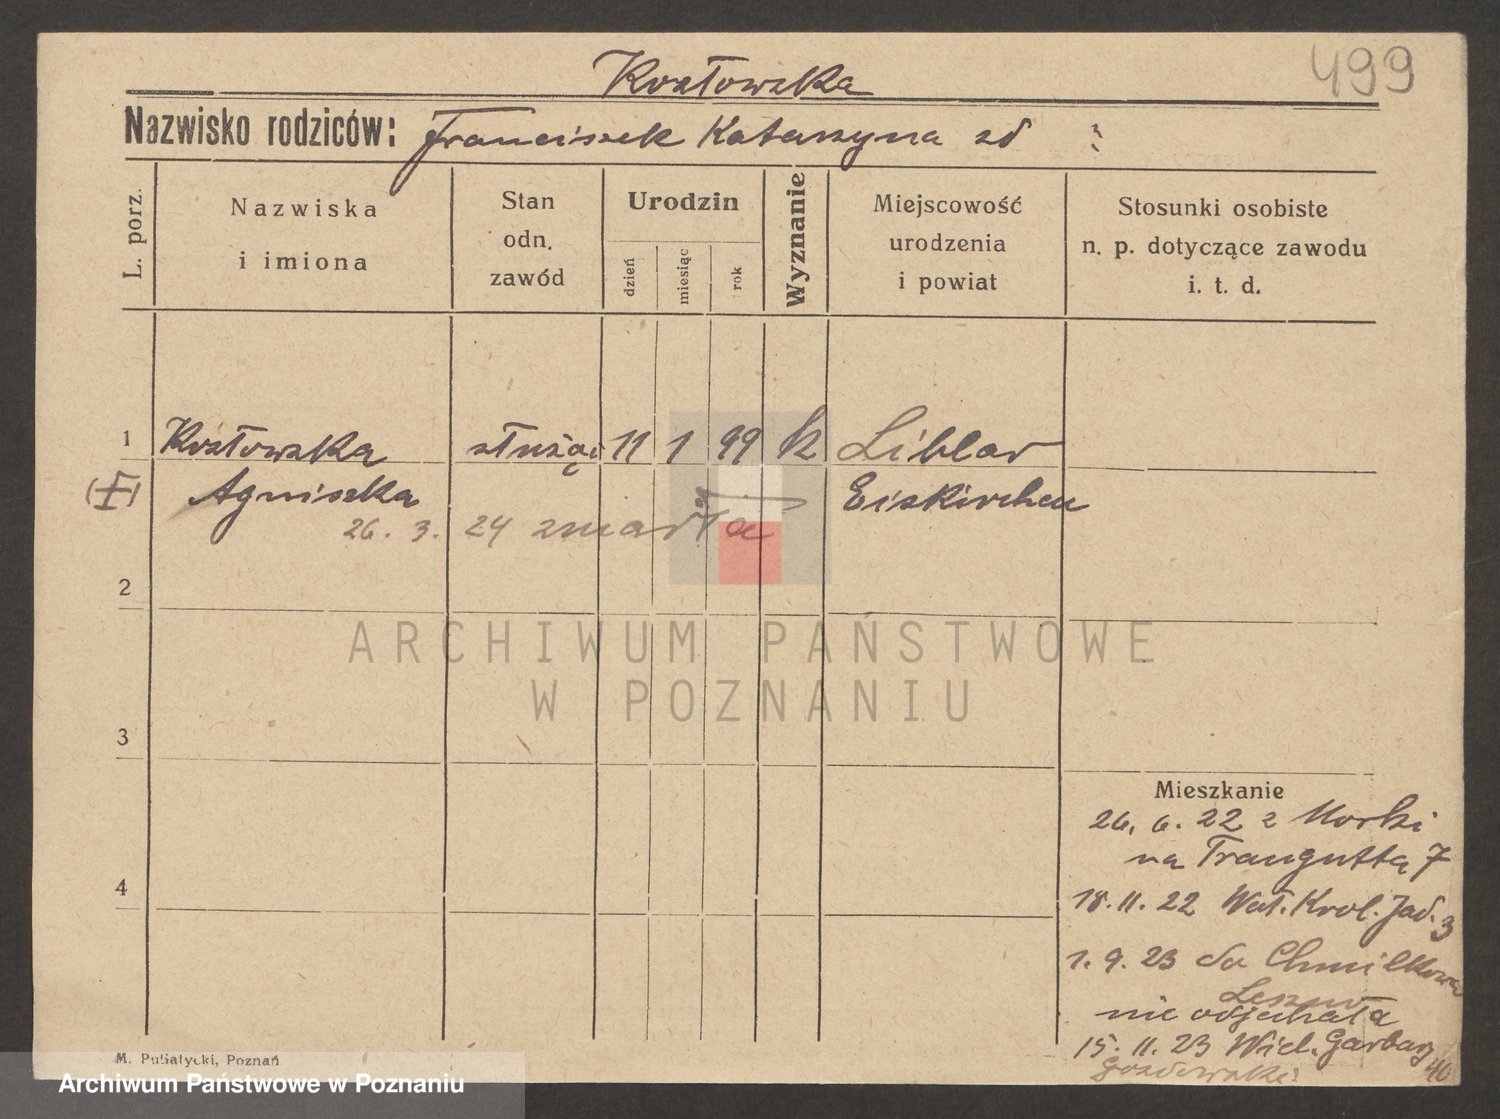 499
Kozłowska
Nazwisko rodziców: Franciszek Katarzyna zd ?
L. porz.
Nazwiska
i imiona
Stan
odn.
zawód
Urodzin
dzień
miesiąc
rok
Wyznanie
Miejscowość
urodzenia
i powiat
Stosunki osobiste
n. p. dotyczące zawodu
i. t. d.
1 Kozłowska służąc 11 1 99 k Liblar
Agniszka Eiskirchen
26. 3. 24 zmarła
2
3
4
ARCHIWUM PAŃSTWOWE
W POZNANIU
Mieszkanie
26. 6. 22 z Morki
na Traugutta 7
18. 11. 22 Wał. Król. Jad. 3
1. 9. 23 do Chmilkowa
Leszno
nie odjechała
15. 11. 23 Wiel. Garbary 40
M. Putiatycki, Poznań
Archiwum Państwowe w Poznaniu